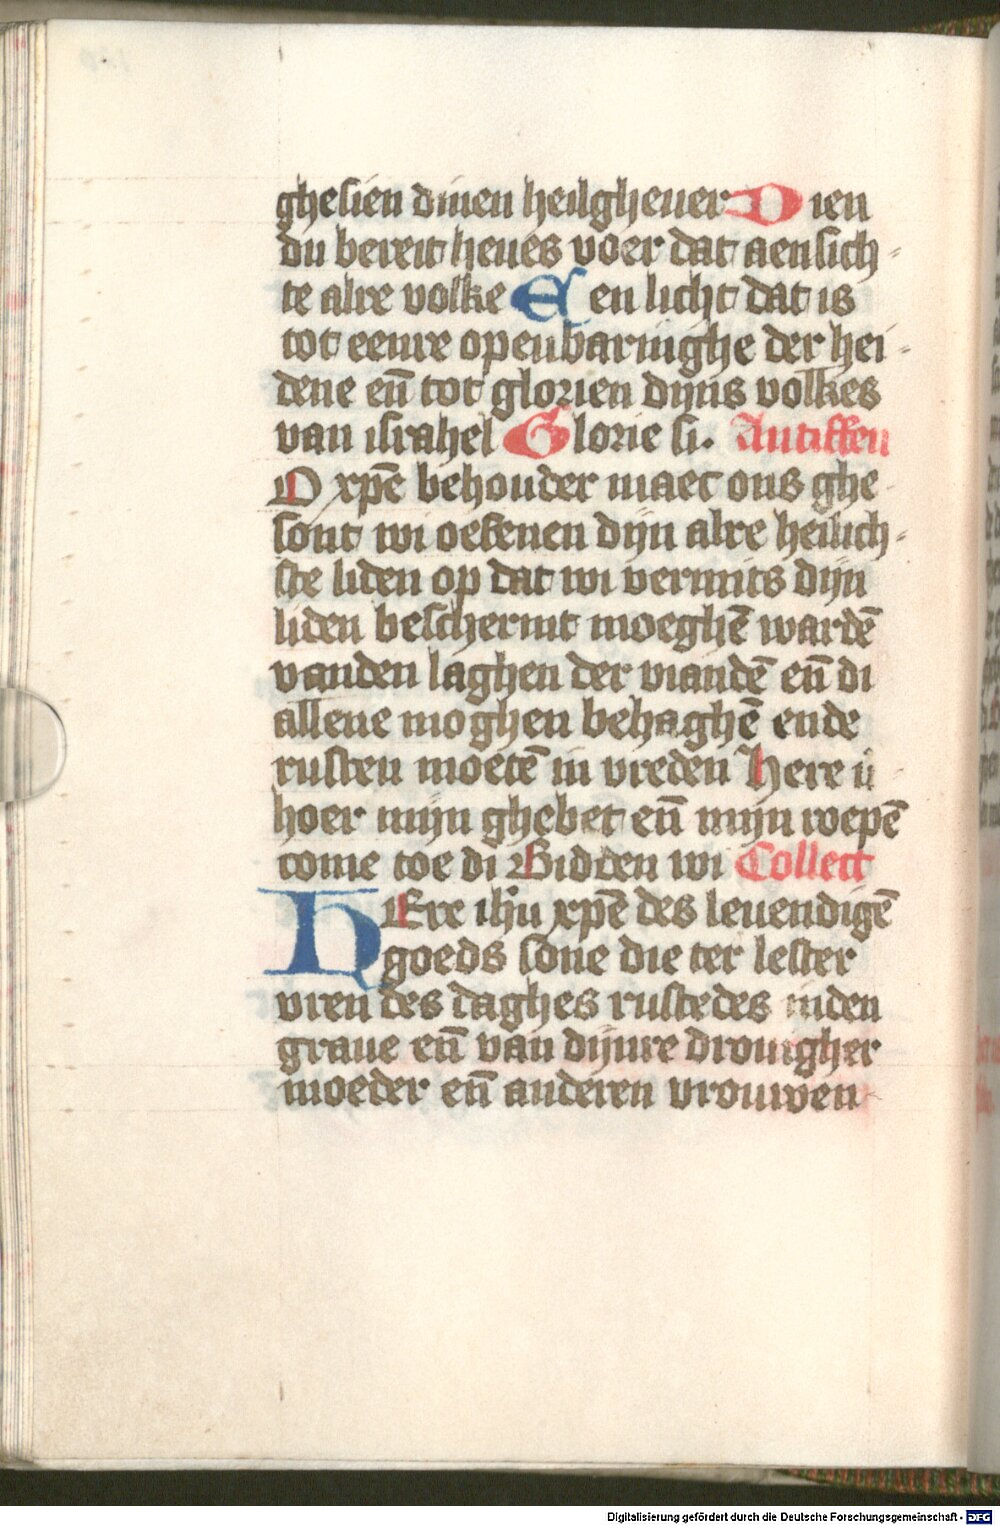 ghesien dinen heilgheuer Dien
du bereit heues voer dat aensich-
te alre volke Een licht dat is
tot eenre openbaringhe der hei-
dene eñ tot glorien dijns volkes
van israhel Glorie si. Antiffen
O xpē behouder maect ons ghe
sont wi oefenen dijn alre heilich-
ste liden op dat wi vermits dijn
liden beschermt moeghē wardē
vanden laghen der viandē eñ di
allene moghen behaghē ende
rusten moetē in vreden Here ū
hoer mijn ghebet eñ mijn roepē
come toe di Bidden wi Collect
HEre ihū xpē des leuendigē
goeds sone die ter lester
vren des daghes rustedes inden
graue eñ van dijnre drouigher
moeder eñ anderen vrouwen
Digitalisierung gefördert durch die Deutsche Forschungsgemeinschaft - DFG